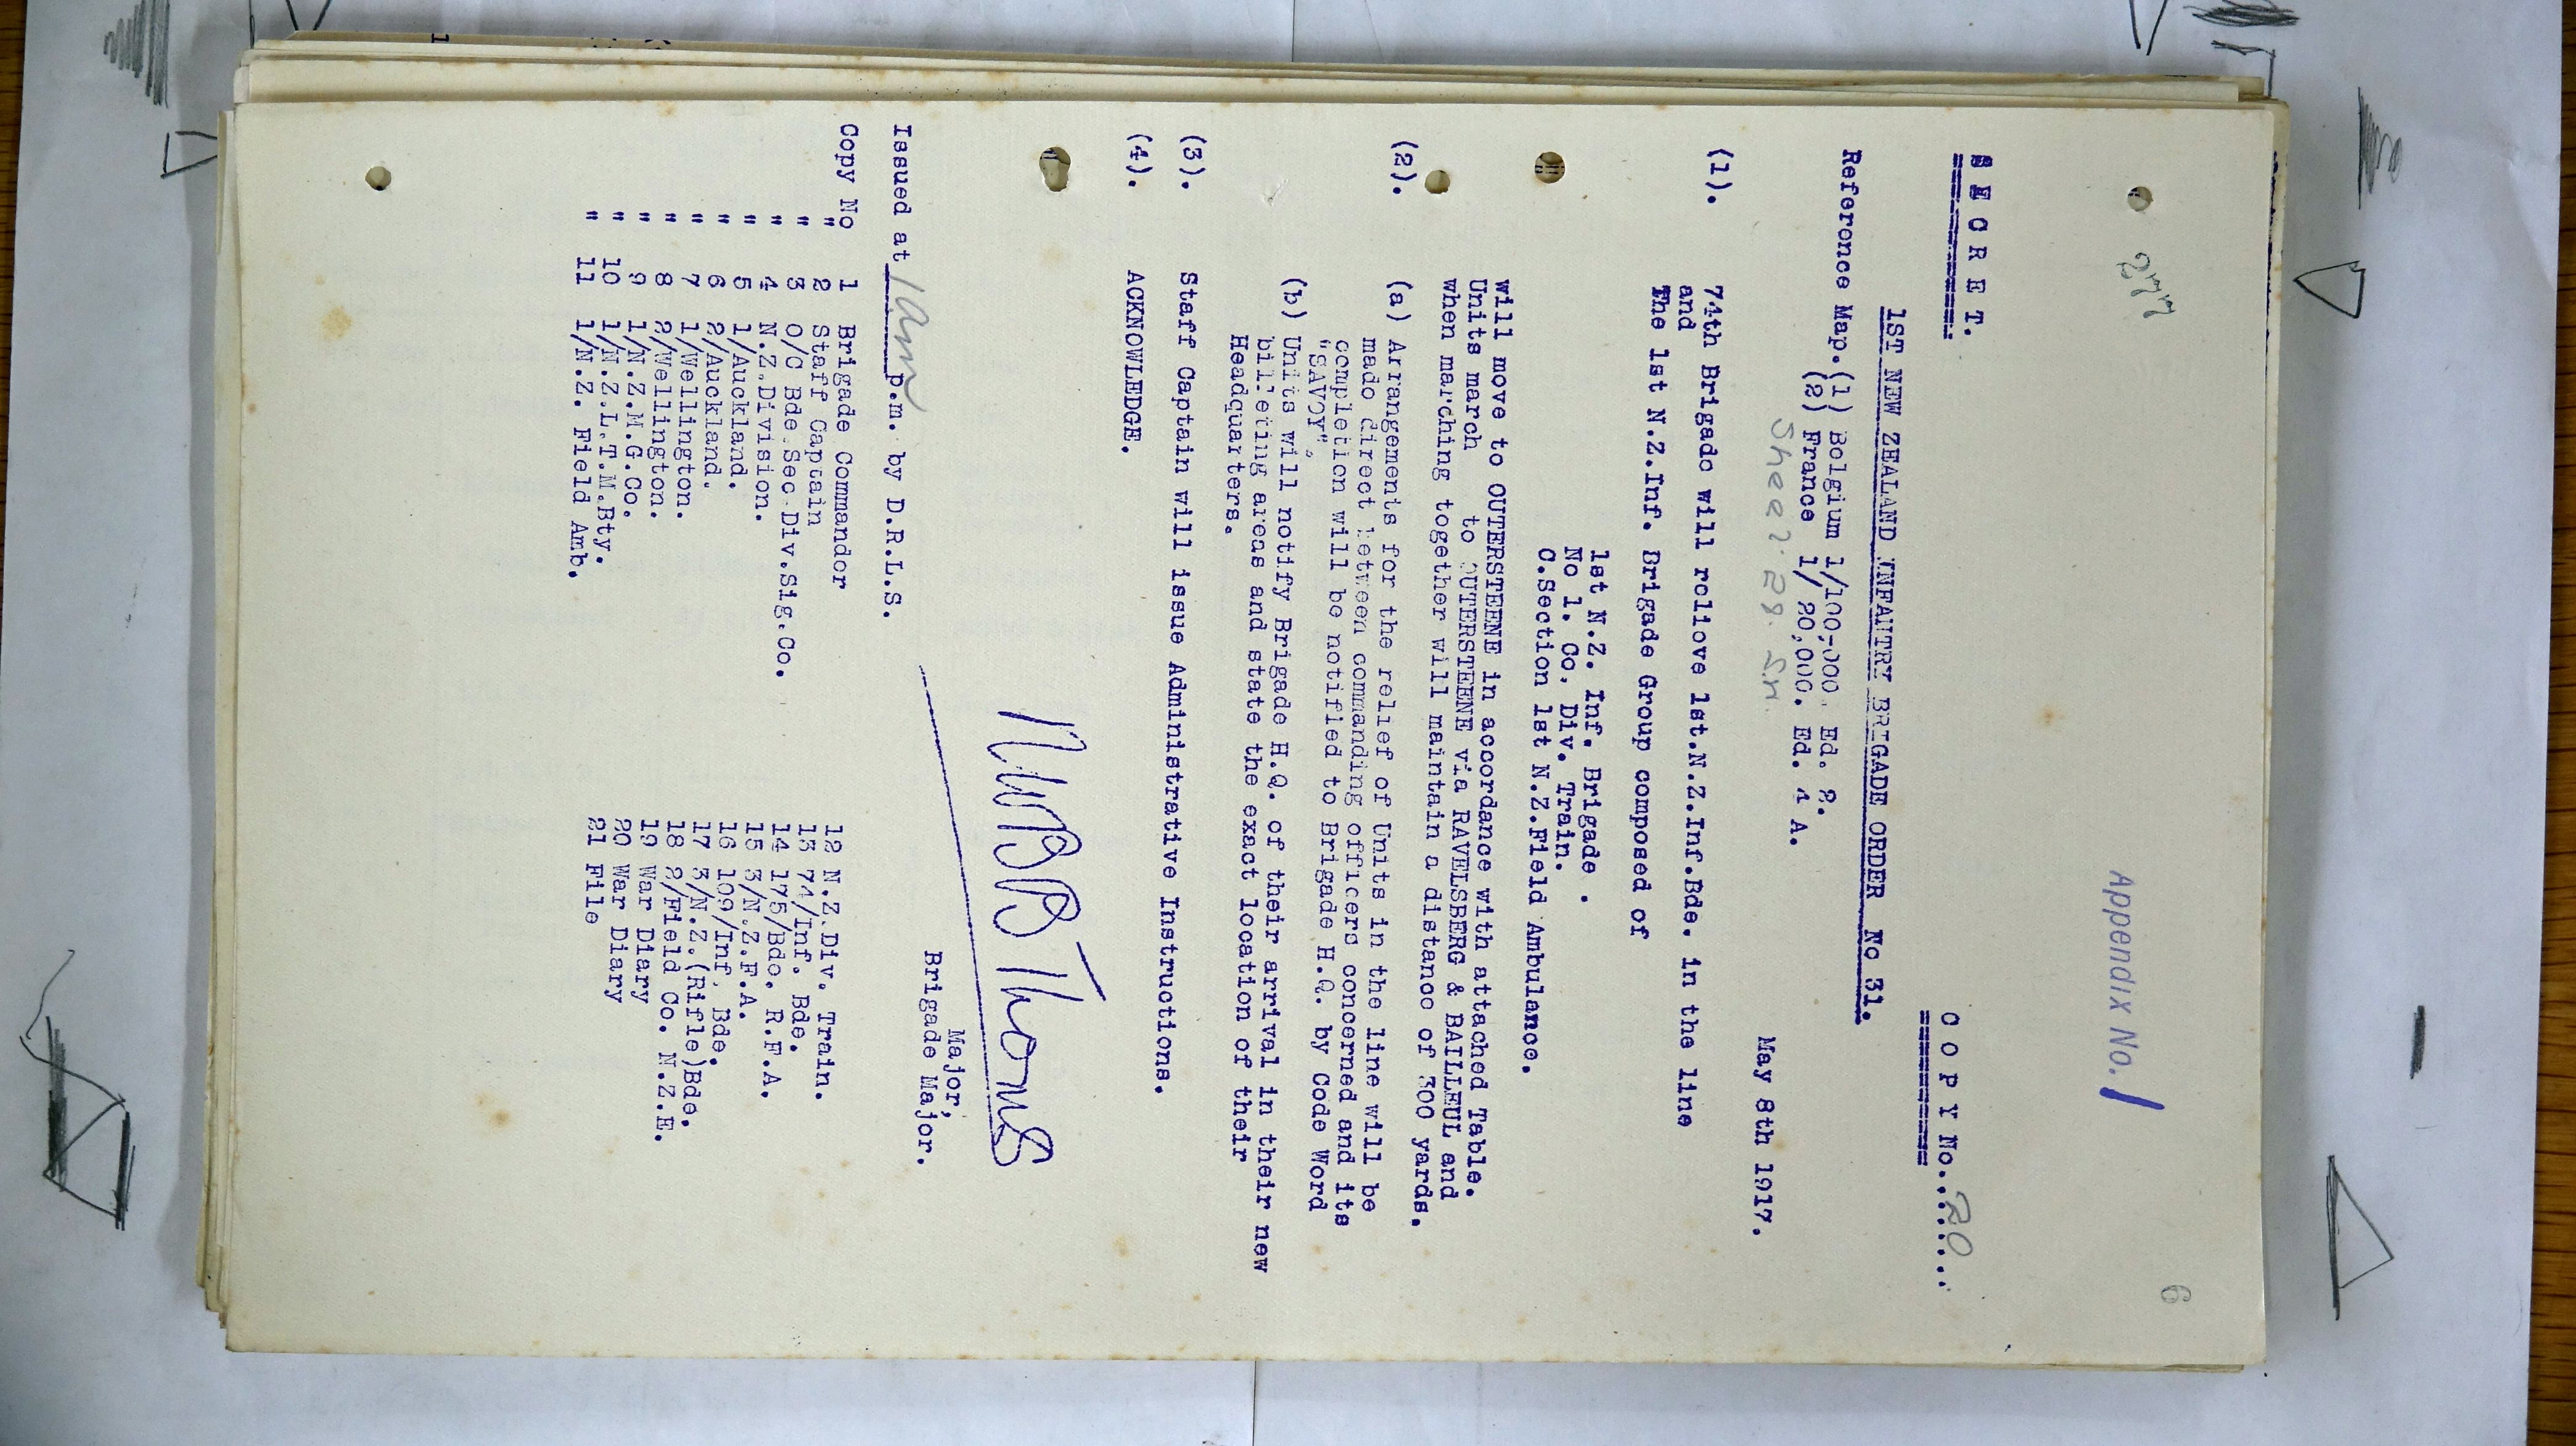 Appendix No. 1
6
S E C R E T.
C O P Y No...20....
1ST NEW ZEALAND INFANTRY BRIGADE ORDER No 31.
Reference Map.(1) Belgium 1/100,000 Ed. 2.
(2) France 1/ 20,000. Ed. 4 A.
Sheet. 28. S.W.
May 8th 1917.
(1). 74th Brigade will relieve 1st.N.Z.Inf.Bde. in the line
and
The 1st N.Z.Inf. Brigade Group composed of
1st N.Z. Inf. Brigade .
No 1. Co. Div. Train.
C.Section 1st N.Z.Field Ambulance.
will move to OUTERSTEENE in accordance with attached Table.
Units march to OUTERSTEENE via RAVELSBERG & BAILLEUL and
when marching together will maintain a distance of 300 yards.
(2). (a) Arrangements for the relief of Units in the line will be
made direct between commanding officers concerned and its
completion will be notified to Brigade H.Q. by Code Word
"SAVOY".
(b) Units will notify Brigade H.Q. of their arrival in their new
billeting areas and state the exact location of their
Headquarters.
(3). Staff Captain will issue Administrative Instructions.
(4). ACKNOWLEDGE.
Major,
Brigade Major.
Issued at 1am p.m. by D.R.L.S.
Copy No 1 Brigade Commander
" 2 Staff Captain
" 3 O/C Bde.Sec.Div.Sig.Co.
" 4 N.Z.Division.
" 5 1/Auckland.
" 6 2/Auckland.
" 7 1/Wellington.
" 8 2/Wellington.
" 9 1/N.Z.M.G.Co.
" 10 1/N.Z.L.T.M.Bty.
" 11 1/N.Z. Field Amb.
12 N.Z.Div. Train.
13 74/Inf. Bde.
14 175/Bde. R.F.A.
15 3/N.Z.F.A.
16 109/Inf. Bde.
17 3/N.Z.(Rifle)Bde.
18 2/Field Co. N.Z.E.
19 War Diary
20 War Diary
21 File